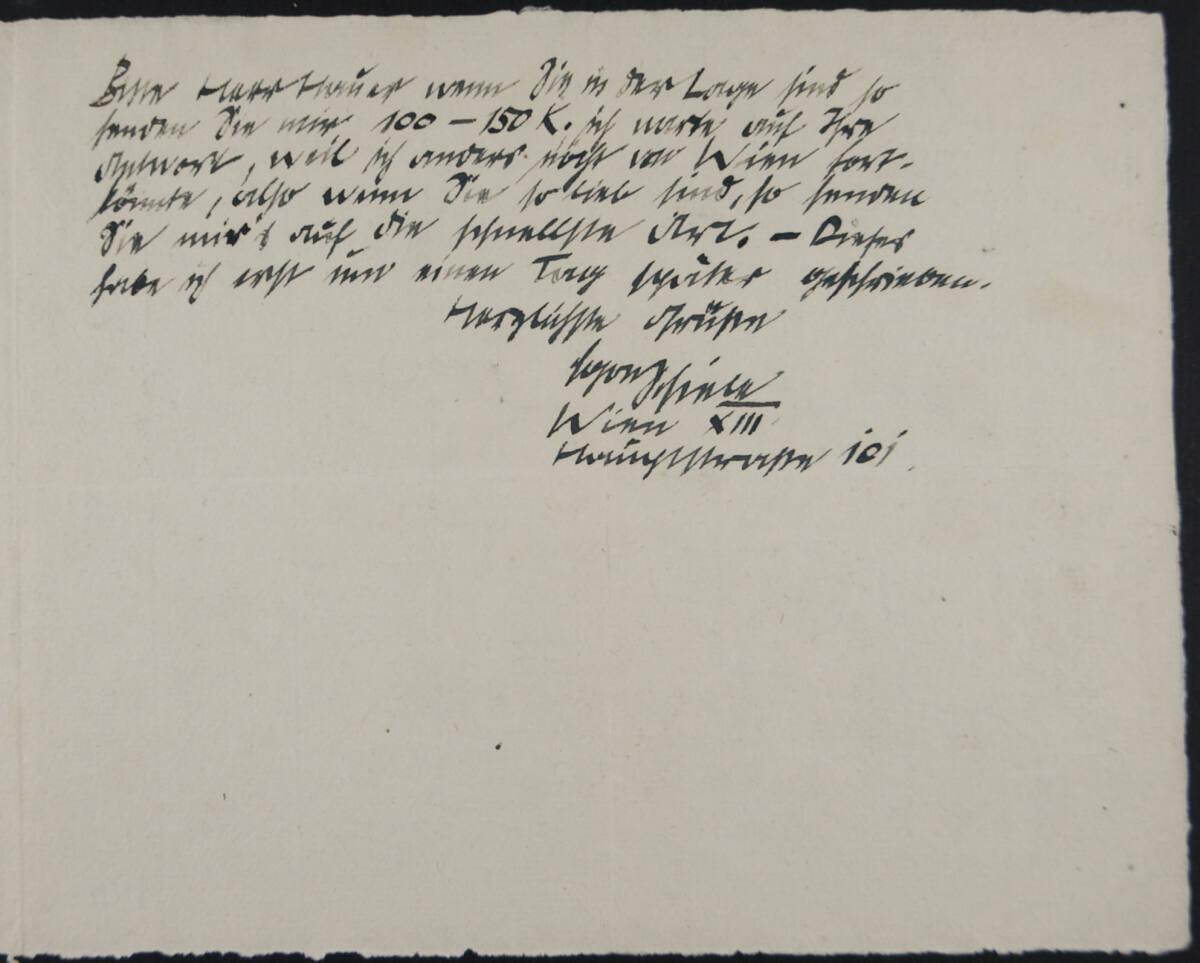 Bitte Herr Hauer wenn Sie in der Lage sind so
senden Sie mir 100 – 150 K. ich warte auf Ihre
Antwort, weil ich anders nicht von Wien fort-
könnte, also wenn Sie so lieb sind, so senden
Sie mir's auf die schnellste Art. – Dieses
habe ich erst um einen Tag später geschrieben.
Herzlichste Grüße
Egon Schiele
Wien XIII
Hauptstraße 101.